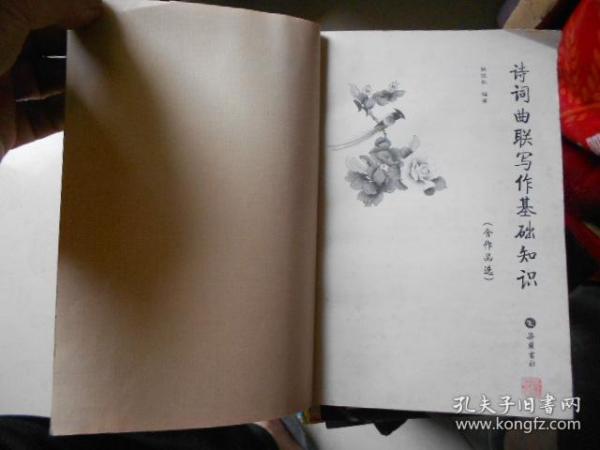 诗词曲联写作基础知识
(含作品选)
编著
岳麓书社
孔夫子旧书网